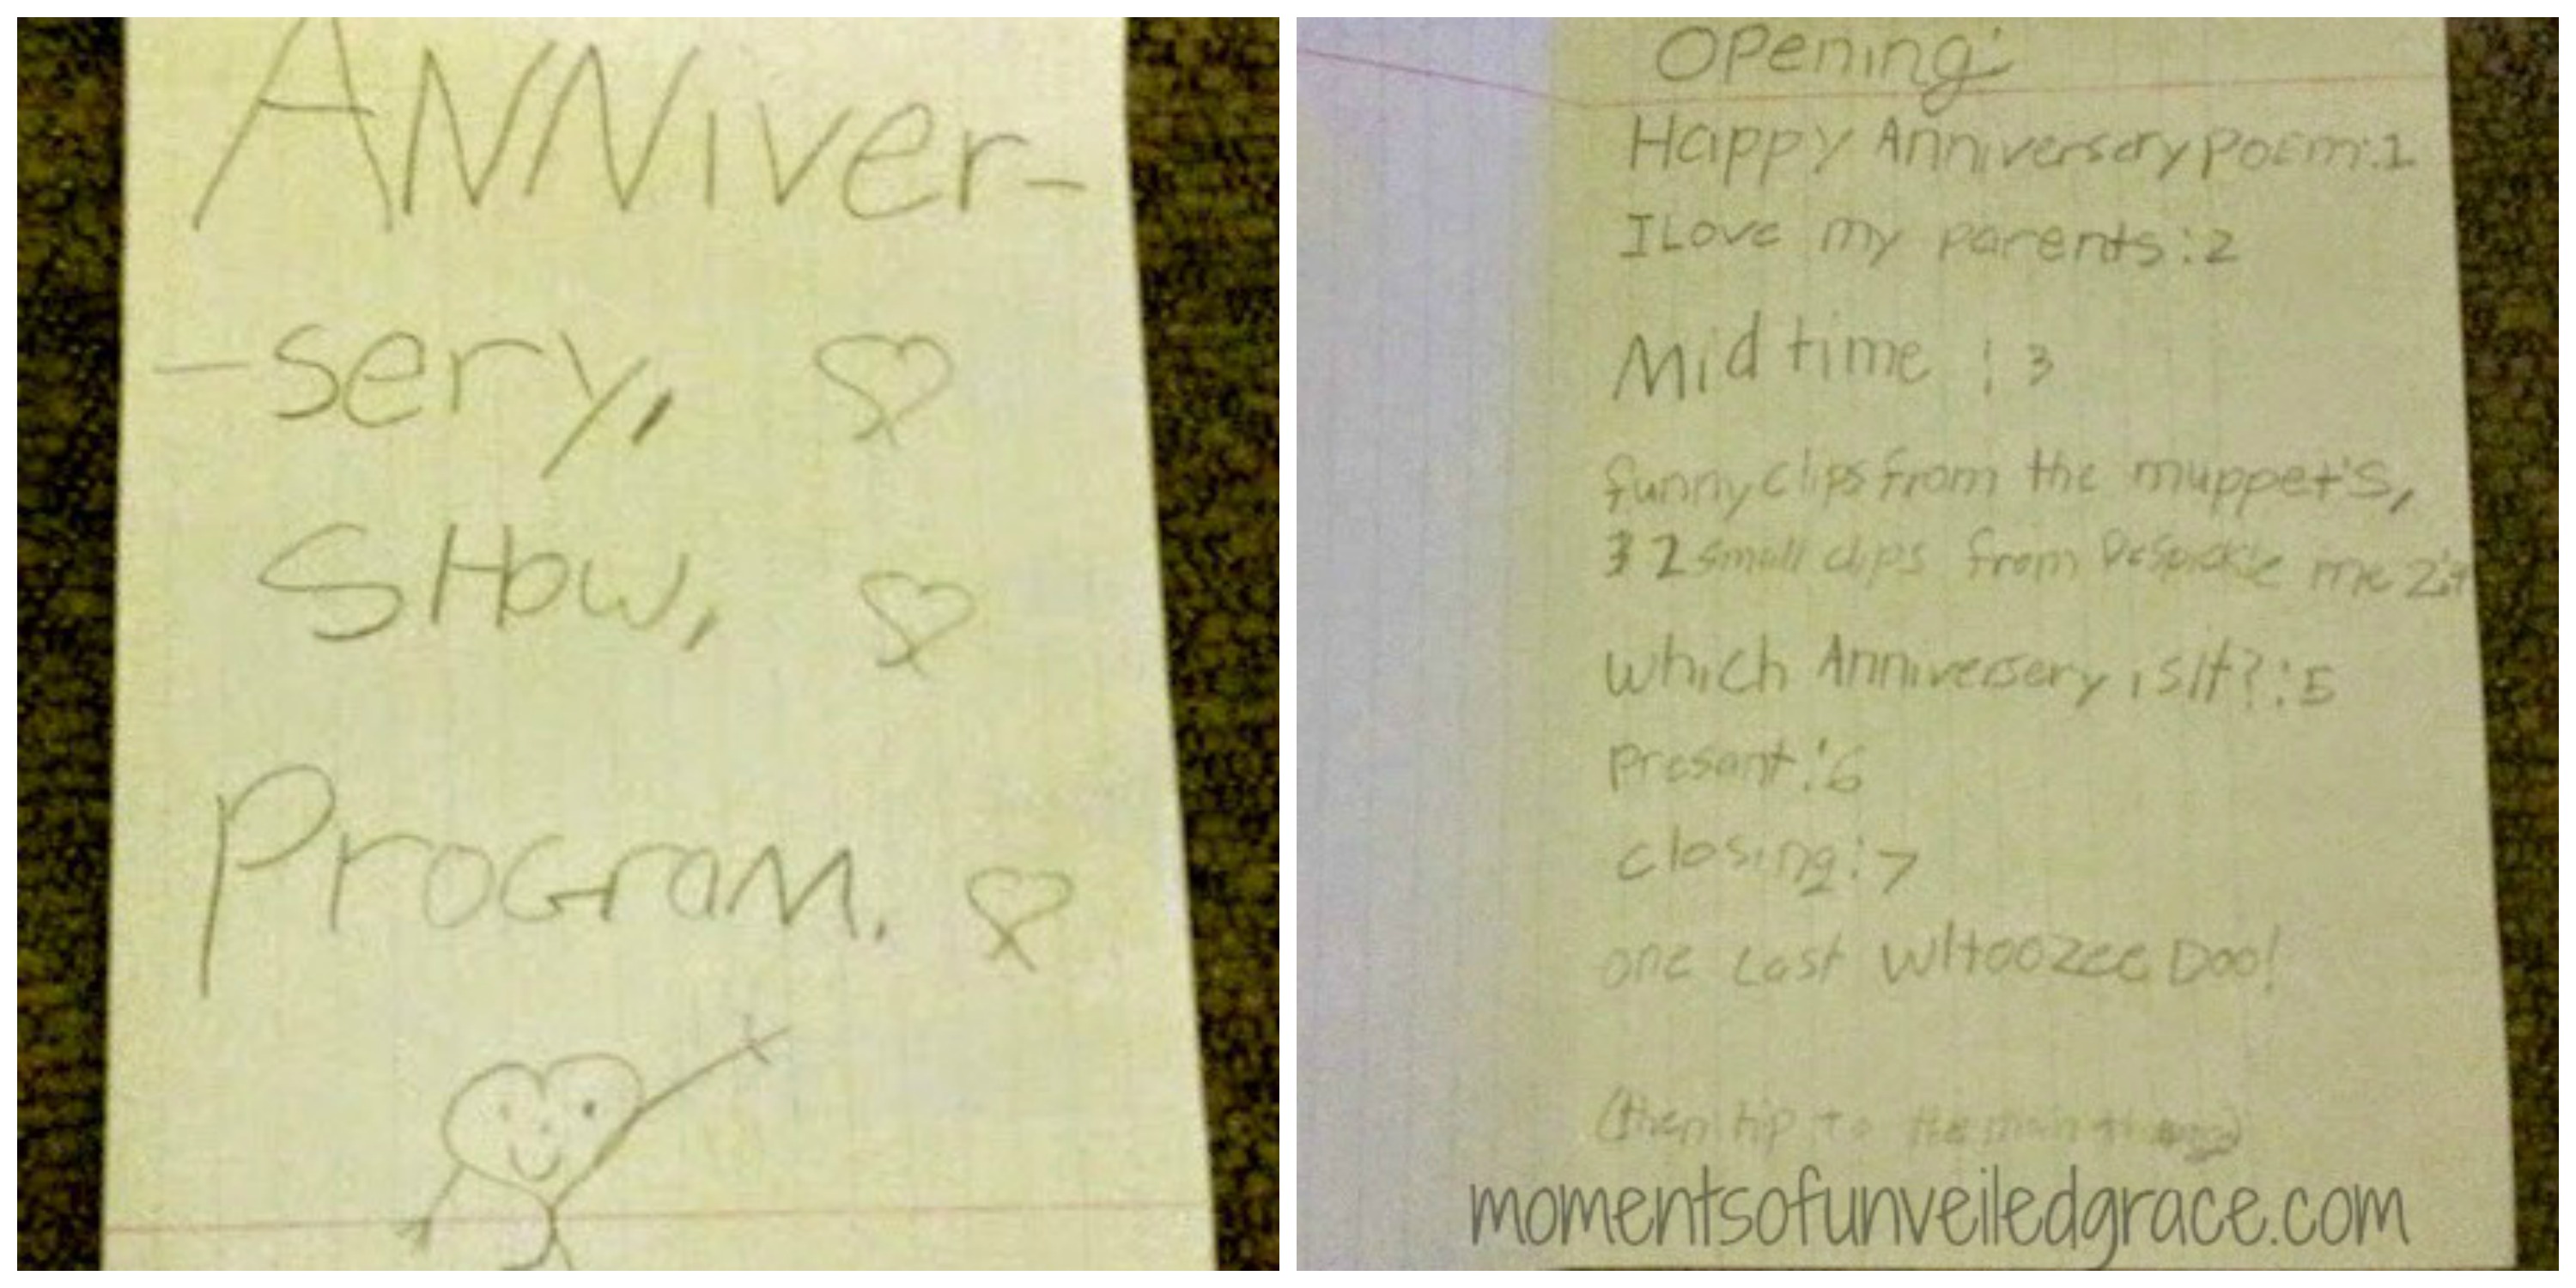 ANNiver-
-sery,
SHow,
ProGraM.
Opening:
Happy Anniversery poem:1
I Love my parents:2
Mid time :3
funny clips from the muppet's,
2 small clips from Despickle me 2:4
which Anniversery is It?:5
presant:6
closing:7
one Last WHoozee Doo!
(then tip to
momentsofunveiledgrace.com